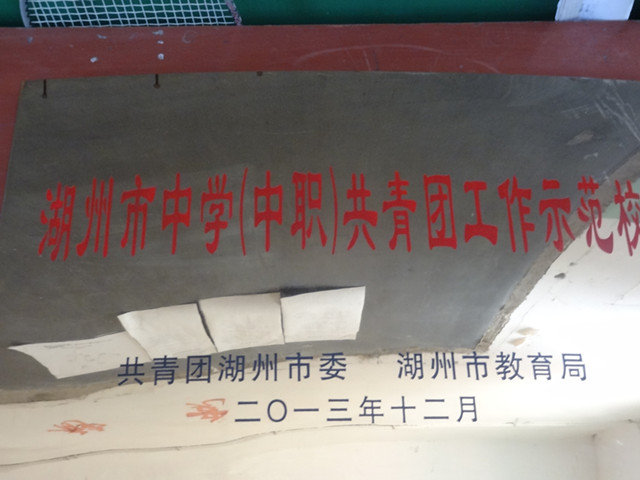 湖州市中学(中职)共青团工作示范校
共青团湖州市委 湖州市教育局
二〇一三年十二月